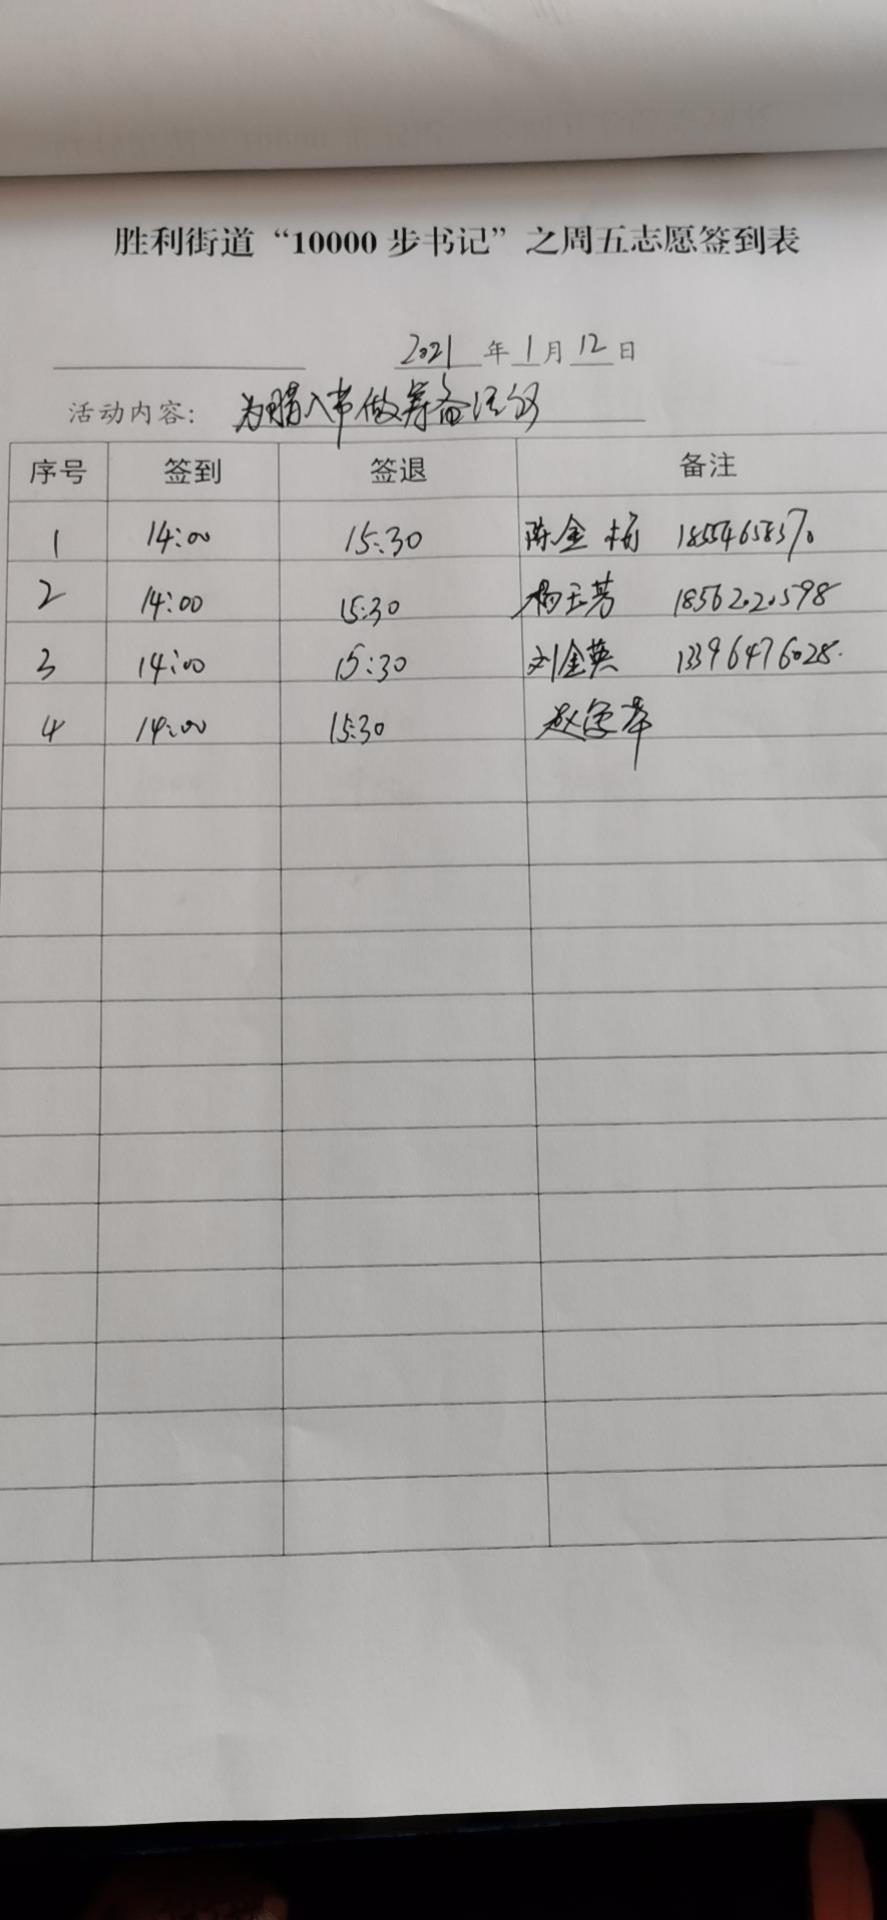 胜利街道“10000步书记”之周五志愿签到表
2021年1月12日
活动内容: 为腊八节做筹备活动
序号 签到 签退 备注
1 14:00 15:30 陈金梅 18554658370
2 14:00 15:30 杨玉芳 18562220598
3 14:00 15:30 刘金英 13396476028.
4 14:00 15:30 赵